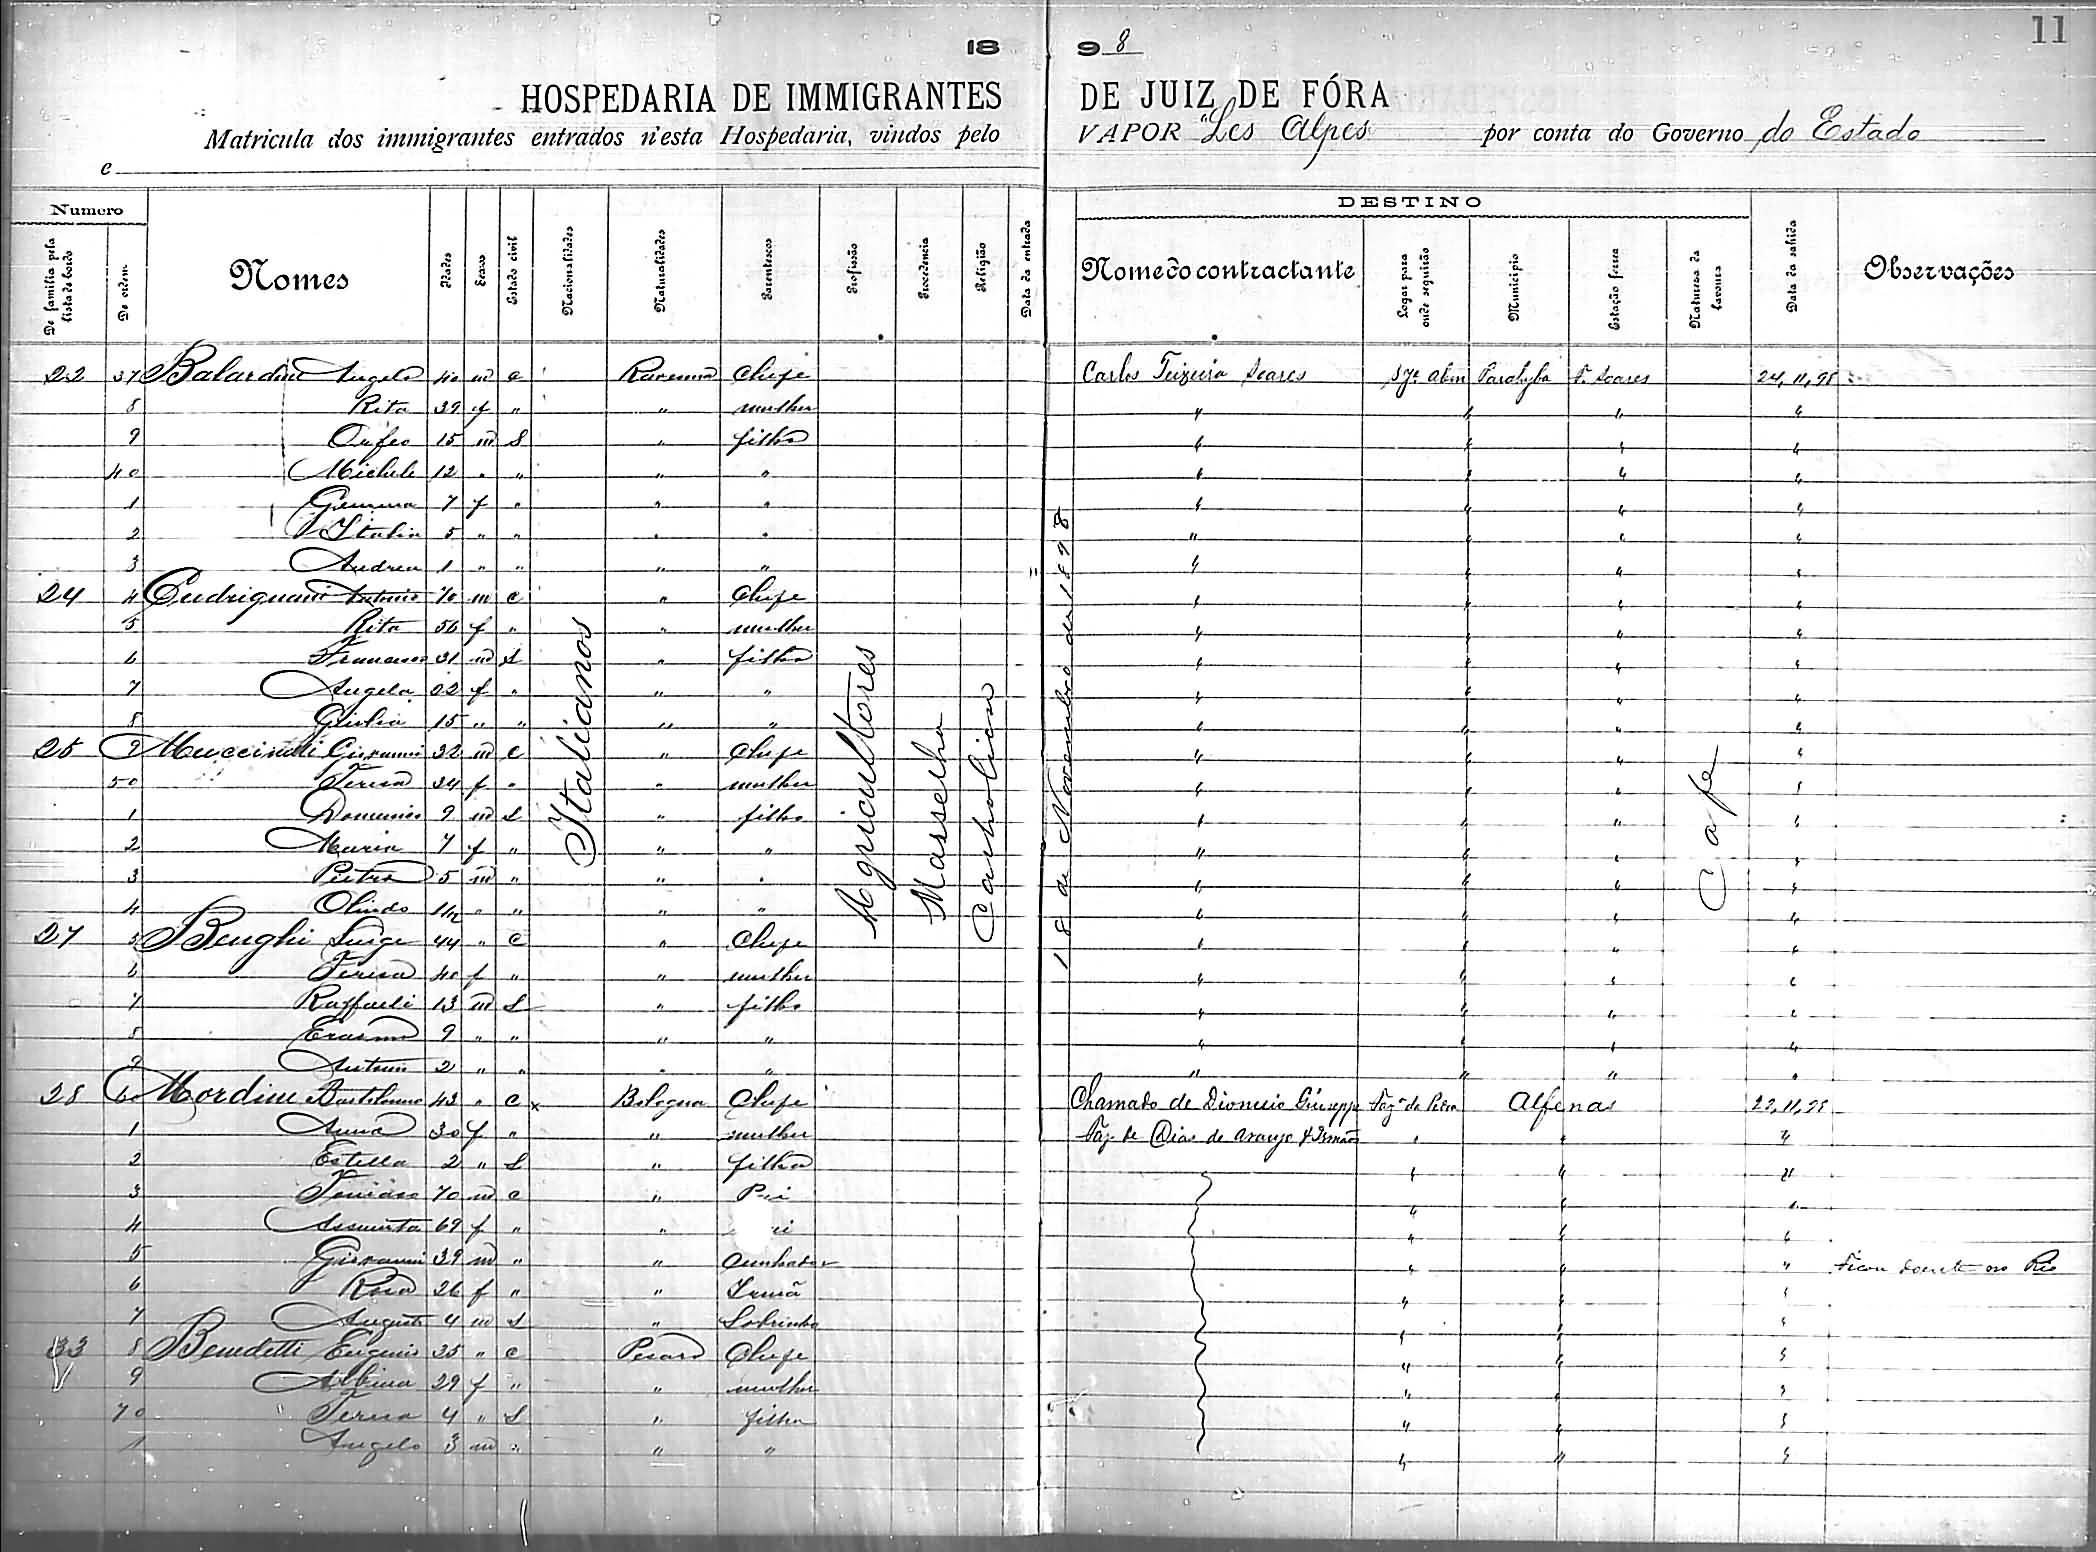 11
18 98
HOSPEDARIA DE IMMIGRANTES DE JUIZ DE FÓRA
Matricula dos immigrantes entrados n'esta Hospedaria, vindos pelo VAPOR "Les Alpes por conta do Governo do Estado
e
Numero DESTINO
De familia pela lista de bordo De ordem Nomes Idades Sexos Estado civil Nacionalidades Naturalidades Parentescos Profissão Procedencia Religião Data da entrada Nome do contractante Logar para onde seguirão Municipio Estação ferrea Natureza da lavoura Data da sahida Observações
22 37 Balardini Angelo 40 m c Ravenna Chefe Carlos Teixeira Soares Parahyba T. Soares 24,11,98
8 Rita 39 f " " mulher " " " "
9 15 m S " filho " " " "
40 Michele 12 " " " " " " " "
1 Gemma 7 f " " " " " " "
2 Italia 5 " " " " " " " "
3 Andrea 1 " " " " " " " "
24 4 Antonio 70 m c " Chefe " " " "
5 Rita 56 f " " mulher " " " "
6 Francesco 31 m S " filho " " " "
7 Angela 22 f " " " " " " "
8 Giulia 15 " " " " " " " "
25 9 Giovanni 32 m c " Chefe " " " "
50 Teresa 34 f " " mulher " " " "
1 Domenico 9 m S " filho " " " "
2 Maria 7 f " " " " " " "
3 Pietro 5 m " " " " " " "
4 Olindo " " " " " " " "
27 5 Benghi Luigi 44 " c " Chefe " " " "
6 Teresa 40 f " " mulher " " " "
7 Raffaele 13 m S " filho " " " "
8 Erasmo 9 " " " " " " " "
9 Antonio 2 " " " " " " " "
28 60 Mordini Bartolomeo 43 " c x Bologna Chefe Chamado de Dionisio Giuseppe Alfenas 23,11,98
1 Anna 30 f " " mulher Faz. de Dias de Araujo & Irmão " " "
2 Estella 2 " S " filha " " "
3 70 m c " Pai " " "
4 Assunta 69 f " " " " "
5 Giovanni 39 m " " Cunhado " " " Ficou doente no Rio
6 Rosa 26 f " " Irmã " " "
7 Augusto 4 m S " Sobrinho " " "
33 8 Benedetti Eugenio 35 " c Pesaro Chefe " " "
9 Albina 29 f " " mulher " " "
70 Teresa 4 " S " filha " " "
1 Angelo 3 m " " " " " "
Italianos
Agricultores
Marselha
Catholicos
18 de Novembro de 1898
Cafe